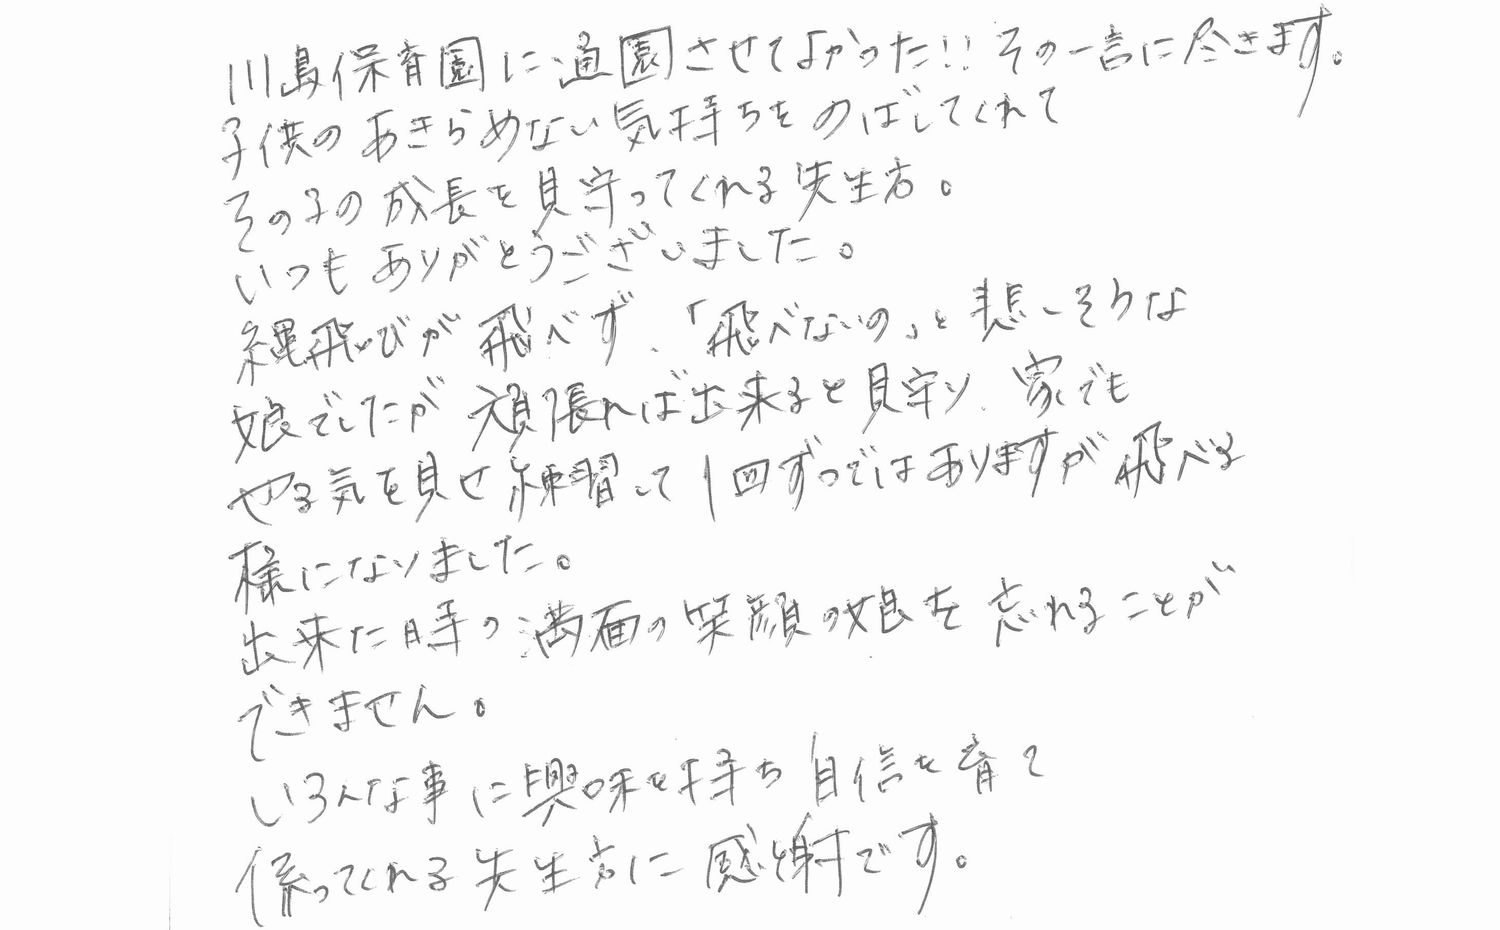 川島保育園に通園させてよかった!! その一言に尽きます。
子供のあきらめない気持ちをのばしてくれて
その子の成長を見守ってくれる先生方。
いつもありがとうございました。
縄飛びが飛べず、「飛べないの」と悲しそうな
娘でしたが頑張れば出来ると見守り、家でも
やる気を見せ練習して1回ずつではありますが飛べる
様になりました。
出来た時の満面の笑顔の娘を忘れることが
できません。
いろんな事に興味を持ち自信を育て
係ってくれる先生方に感謝です。